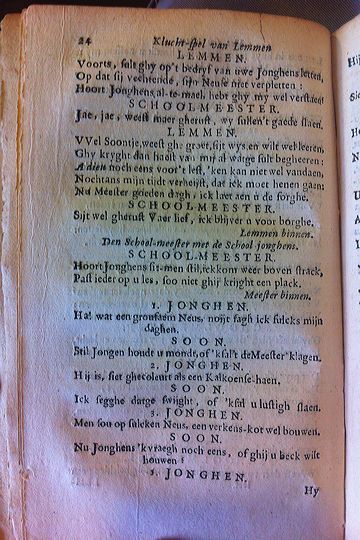 24 Klucht-spel van Lemmen
LEMMEN.
Voorts, sult ghy op't bedryf van uwe Jonghens letten,
Op dat sij vechtende, sijn Neuse niet verpletten:
Hoort Jonghens al-te-mael, hebt ghy my wel verstaen?
SCHOOLMEESTER.
Jae, jae, weest maer gherust, wy sullen't goede slaen.
LEMMEN.
VVel Soontje, weest gh: graet, sijt wys, en wilt wel leeren,
Ghy kryght dan haest van mij al watge sult begheeren:
A dieu noch eens voor't lest, 'ken kan niet wel vandaen,
Nochtans mijn tijdt verheijst, dat ick moet henen gaen:
Nu Meester goeden dagh, ick laet aen u de sorghe.
SCHOOLMEESTER.
Sijt wel gherust Vaer lief, ick blijver u voor borghe.
Lemmen binnen.
Den School-meester met de School-jonghens.
SCHOOLMEESTER.
Hoort Jonghens sit-men stil, ick kom weer boven strack,
Past ieder op u les, soo niet ghij krijght een plack.
Meester binnen.
1. JONGHEN.
Ha! wat een grousaem Neus, noijt sagh ick sulcks mijn
daghen.
SOON.
Stil Jongen houdt u mondt, of 'k sal't de Meester klagen.
2. JONGHEN.
Hij is, siet ghecoleurt als een Kalkoense-haen,
SOON.
Ick segghe datge swijght, of 'ksul u lustigh slaen.
3. JONGHEN.
Men sou op sulcken Neus, een verkens-kot wel bouwen.
SOON.
Nu Jonghens 'k vraegh noch eens, of ghij u beck wilt
houwen?
3. JONGHEN.
Hy